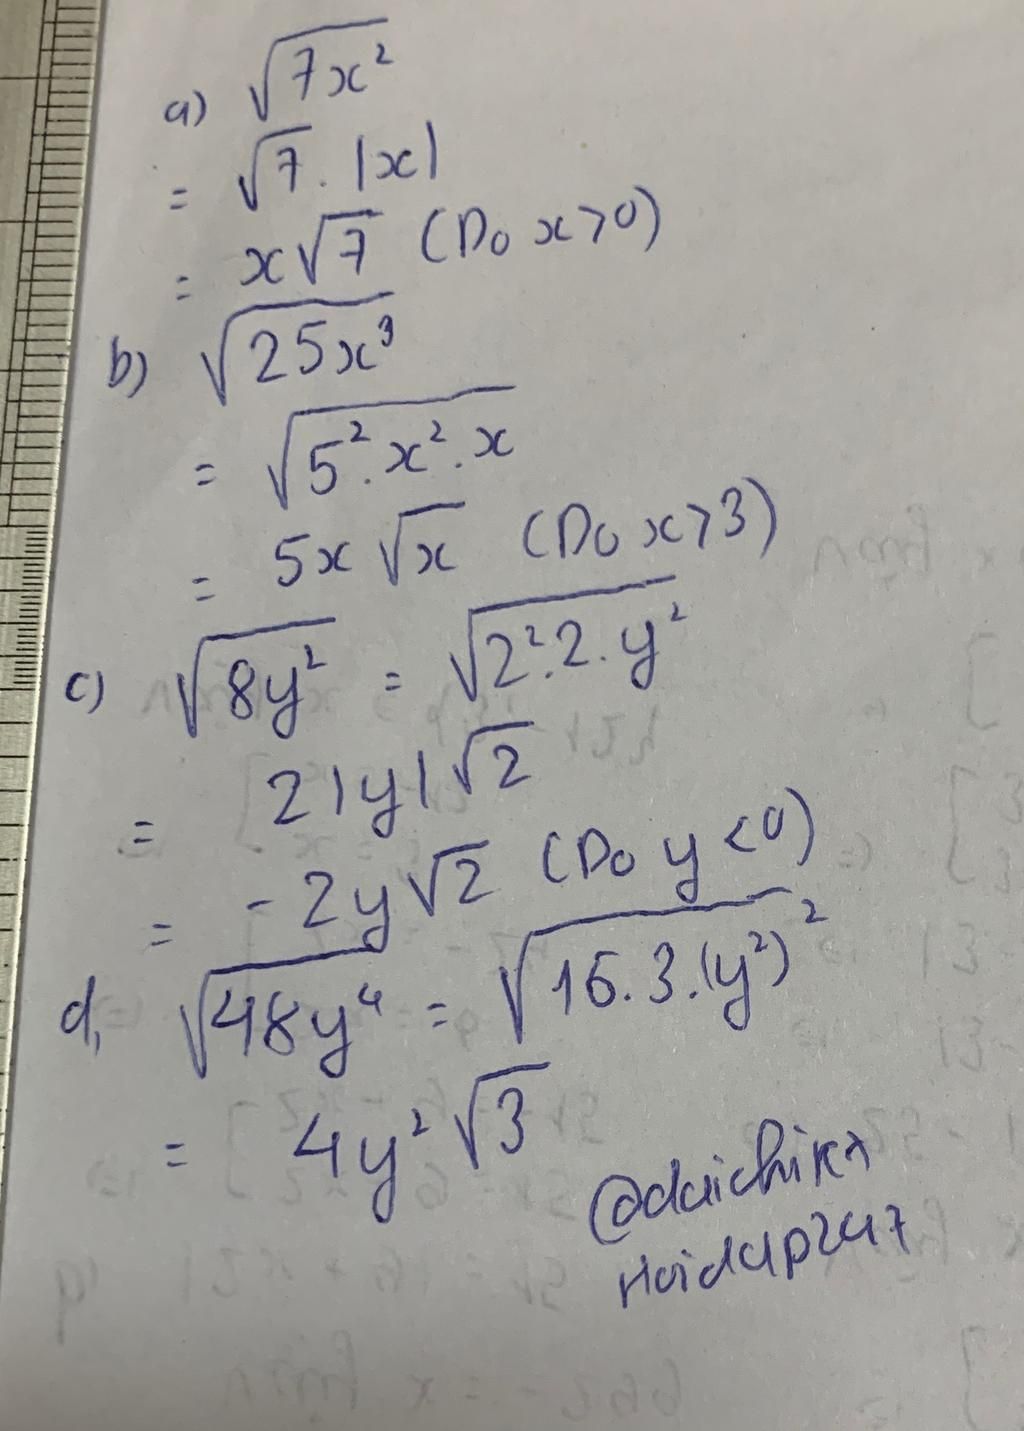 a) √7x²
= √7 . |x|
= x√7 (Do x>0)
b) √25x³
= √5².x².x
= 5x √x (Do x>3)
c) √8y² = √2².2.y²
= 2|y|√2
= -2y√2 (Do y<0)
d, √48y⁴ = √16.3.(y²)²
= 4y²√3
@daichika
Hoidap247